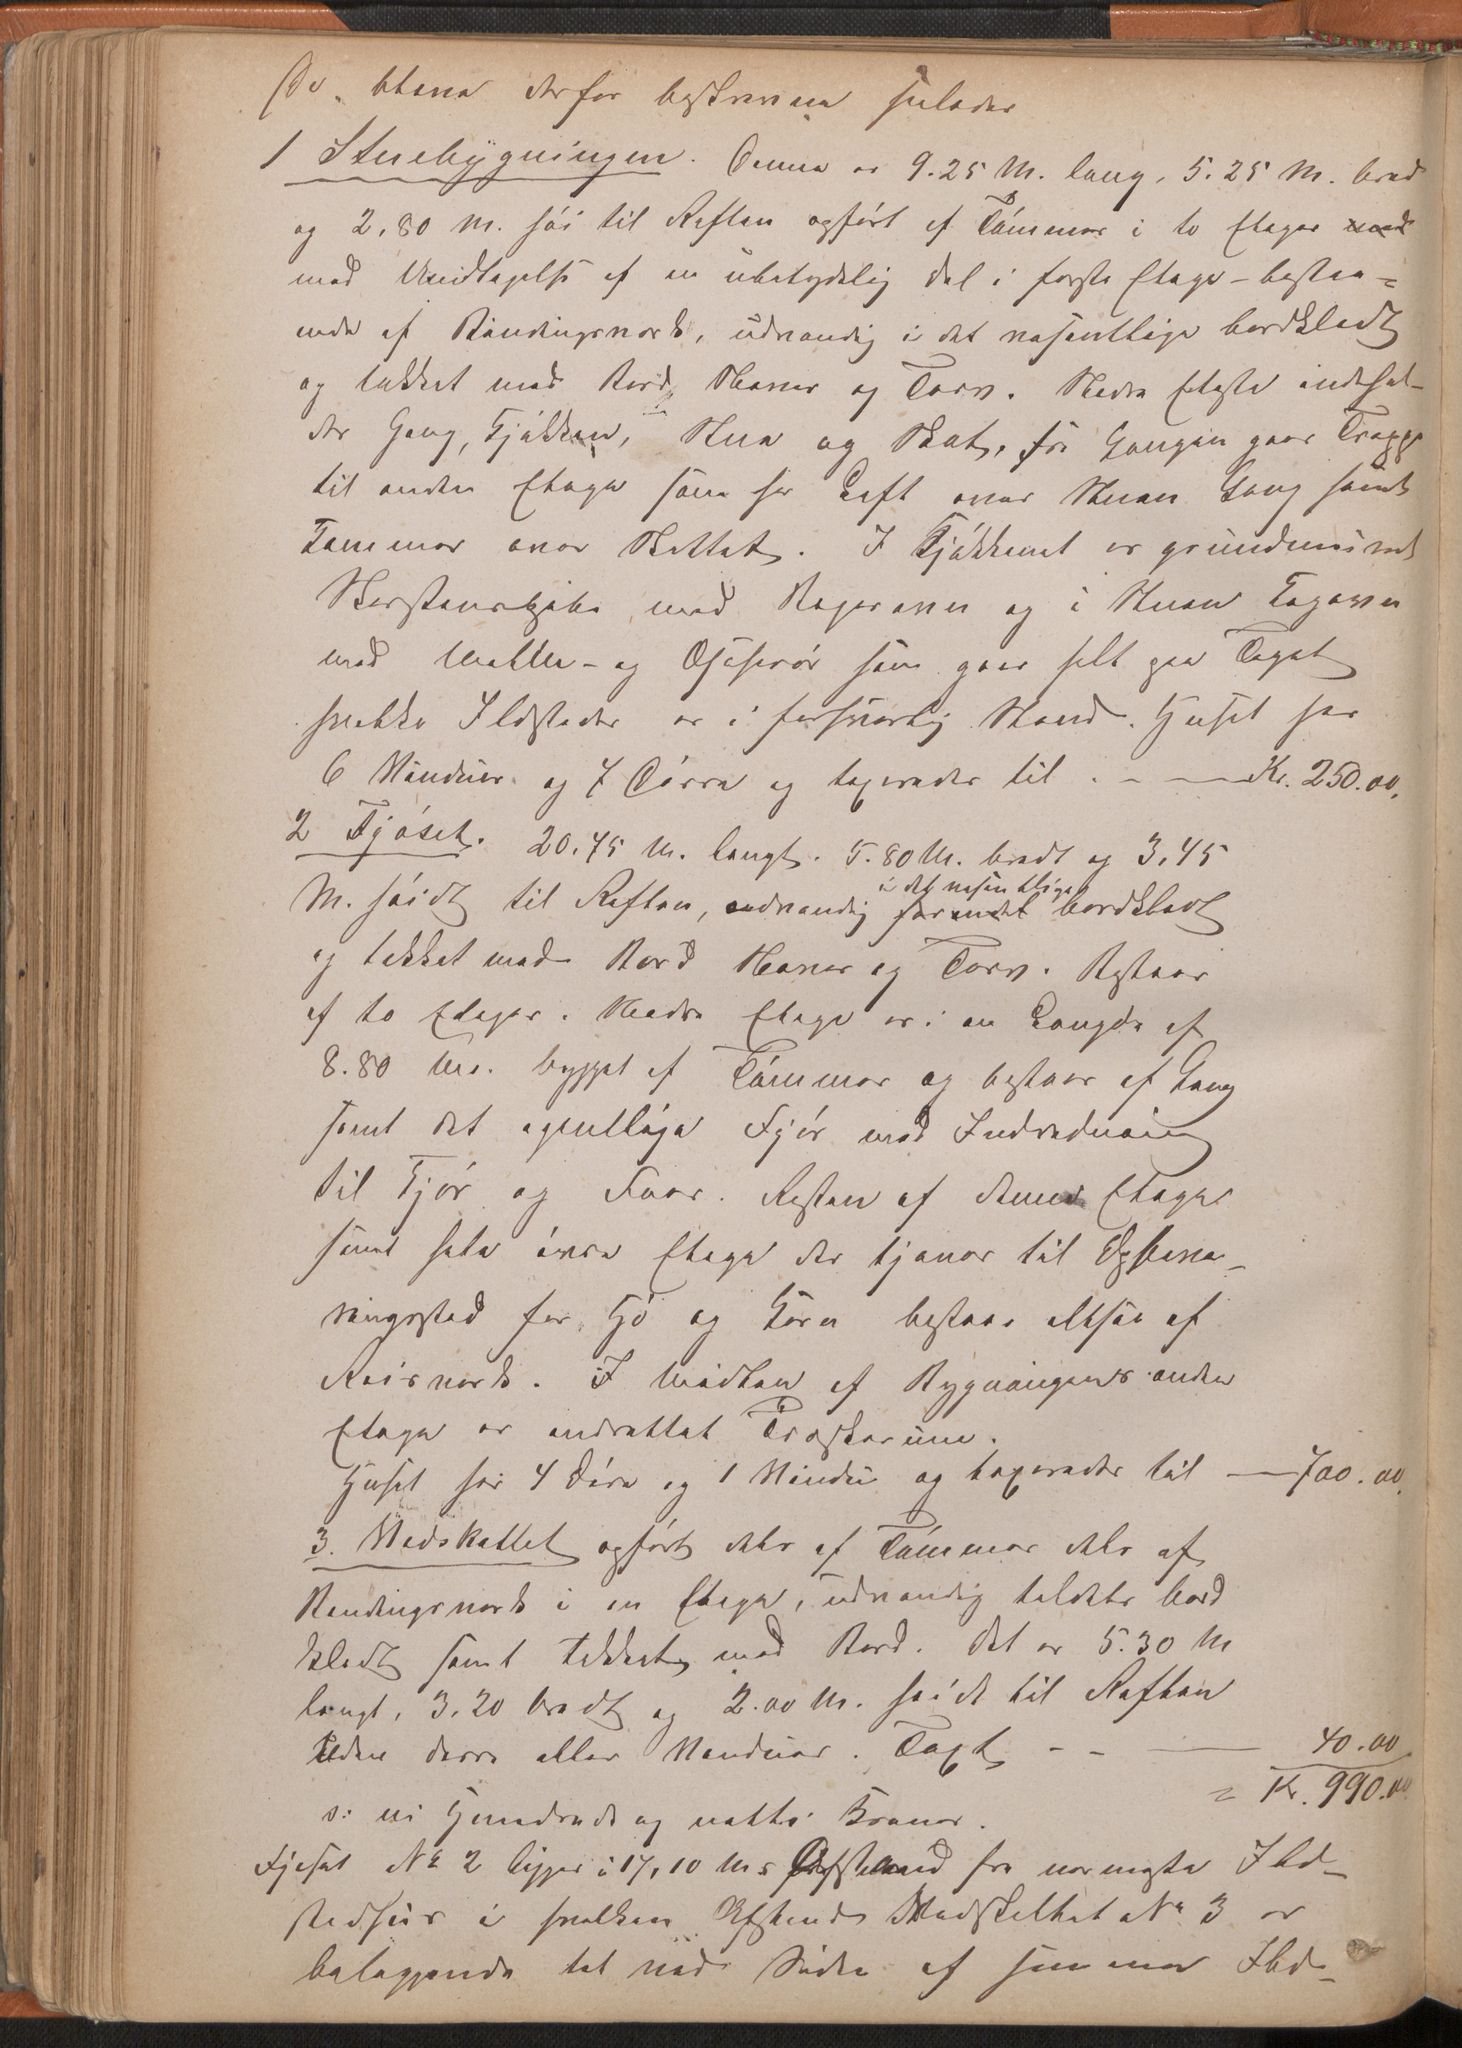 De bleve derfor beskrevne saaledes
1 Stuebygningen. Denne er 9.25 M. lang, 5.25 M. bred
og 2.80 M. høi til Raften opført af Tømmer i to Etager
med Undtagelse af en ubetydelig Del i første Etage – bestaa=
ende af Bindingsverk, udvendig i det væsentlige bordklædt
og tækket med Bord, Næver og Torv. Nedre Etage indehol-
der Gang, Kjøkken, Stue og Skot, fra Gangen gaar Trappe
til anden Etage som har Loft over Stuen Gang samt
Kammer over Skottet. I Kjøkkenet er grundmuret
Skorstenspibe med Bagerovn og i Stuen Kogeovn
med Mellem- og Ophørør som gaar helt paa Taget
hvilke Ildsteder er i forsvarlig Stand. Huset har
6 Vinduer og 7 Dörre og taxeredes til . – — Kr. 250.00.
2 Fjöset. 20.75 M. langt. 5.80 M. bredt og 3.45
M. höidt til Raften, udvendig i det væsentlige bordklædt
og tækket med Bord Næver og Torv. Bestaar
af to Etager. Nedre Etage er i en Længde af
8.80 M. bygget af Tömmer og bestaar af Gang
samt det egentlige Fjös med Indredning
til Kjör og Faar. Resten af denne Etage
samt hele övre Etage der tjener til Opbeva-
ringssted for Hö og Korn bestaar altsaa af
Reisverk. I Midten af Bygningens anden
Etage er indrettet Træskerum.
Huset har 4 Döre og 1 Vindu og taxeredes til — 700.00.
3. Vedskottet opfört dels af Tömmer dels af
Bindingsverk i en Etage, udvendig heldels bord
klædt samt tækket med Bord. Det er 5.30 M
langt, 3.20 bredt og 2.00 M. höidt til Raften
Uden Dörre eller Vinduer. Taxt – – — 40.00
= Kr. 990.00
o: ni Hundrede og nitti Kroner.
Fjöset No 2 ligger i 17,10 M.s Afstand fra nærmeste Ild-
stedhus i hvilken Afstand Vedskottet No 3 er
beliggende tæt ved Siden af samme Ild-